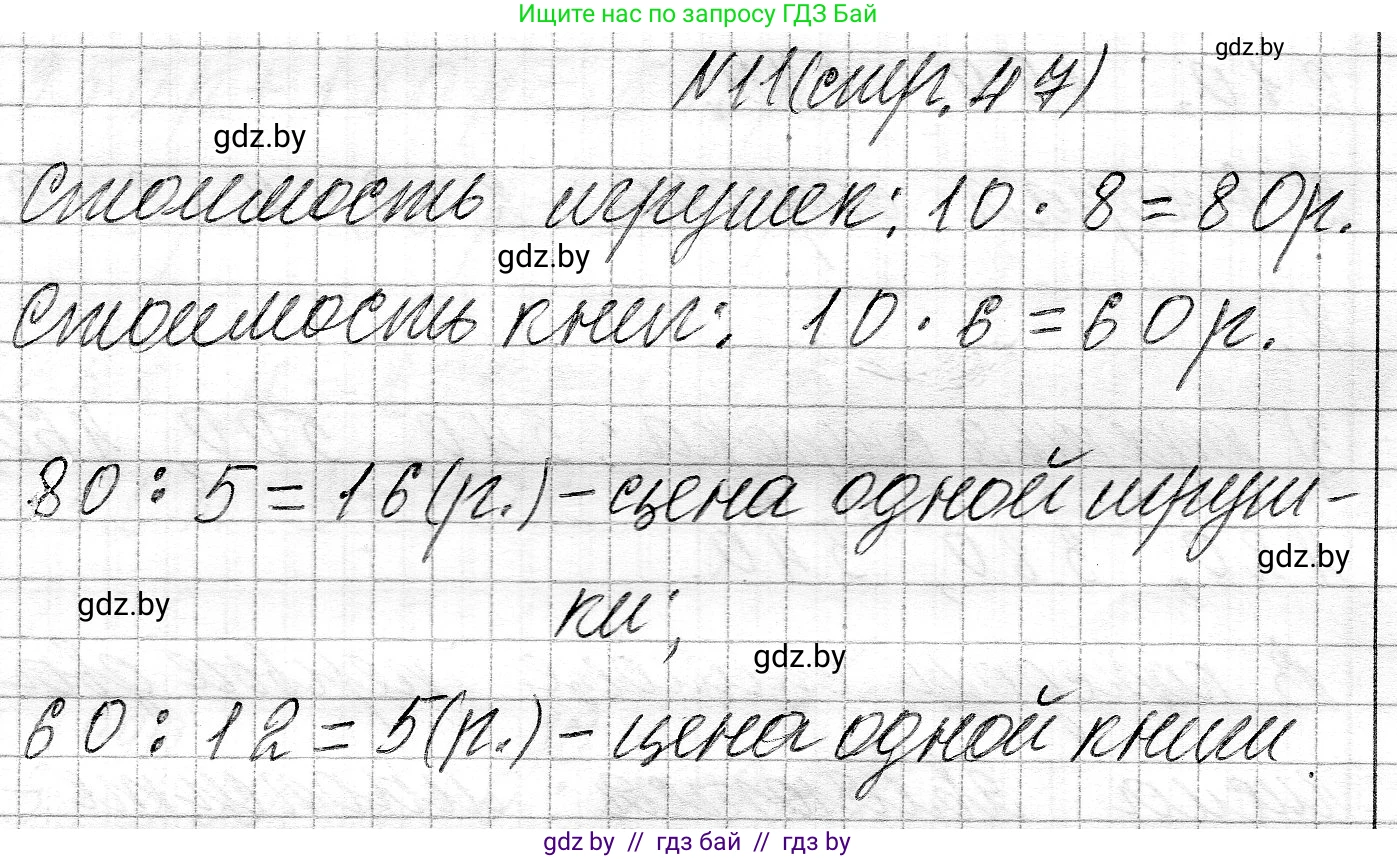 Ищите нас по запросу ГДЗ Бай
gdz.by
№11(стр. 47)
gdz.by
Стоимость игрушек: 10 · 8 = 80р.
gdz.by
Стоимость книг: 10 · 6 = 60р.
80 : 5 = 16(р.) – цена одной игруш-
gdz.by
gdz.by
ки;
gdz.by
60 : 12 = 5(р.) – цена одной книги.
gdz by // гдз бай // гдз by